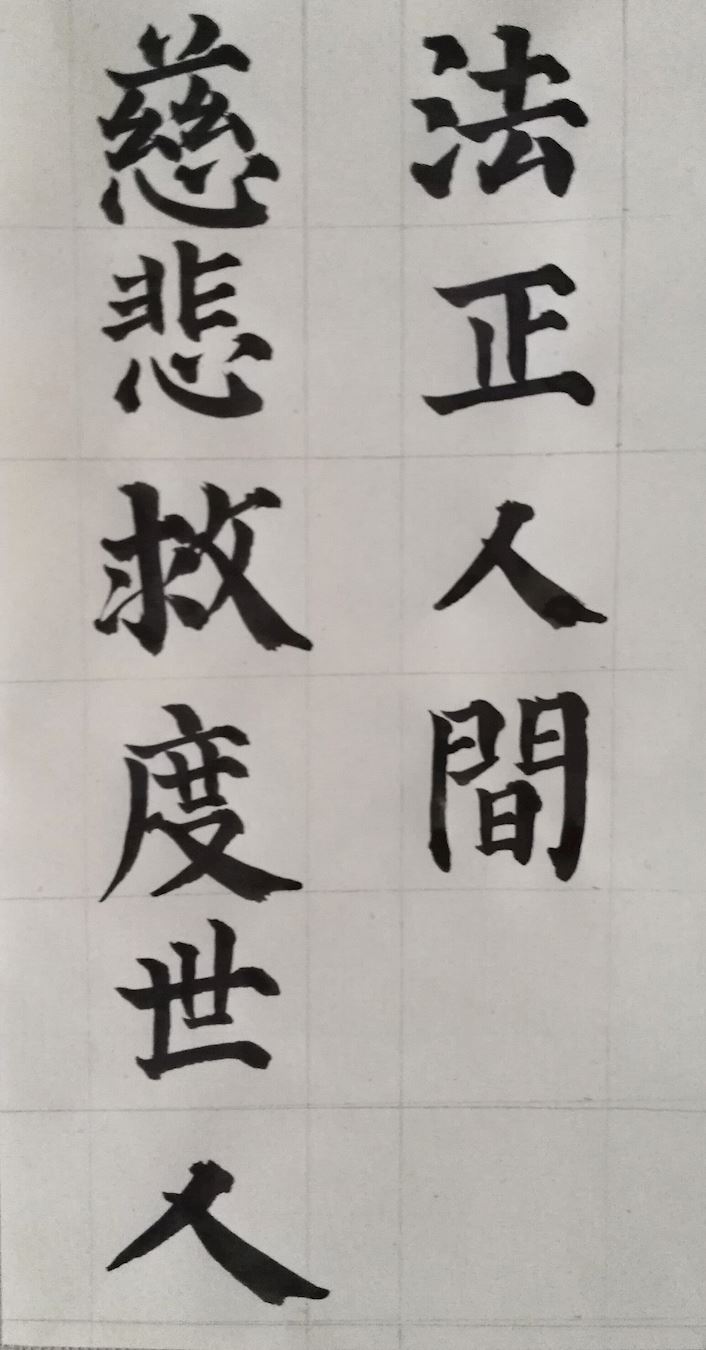 法正人間
慈悲救度世人